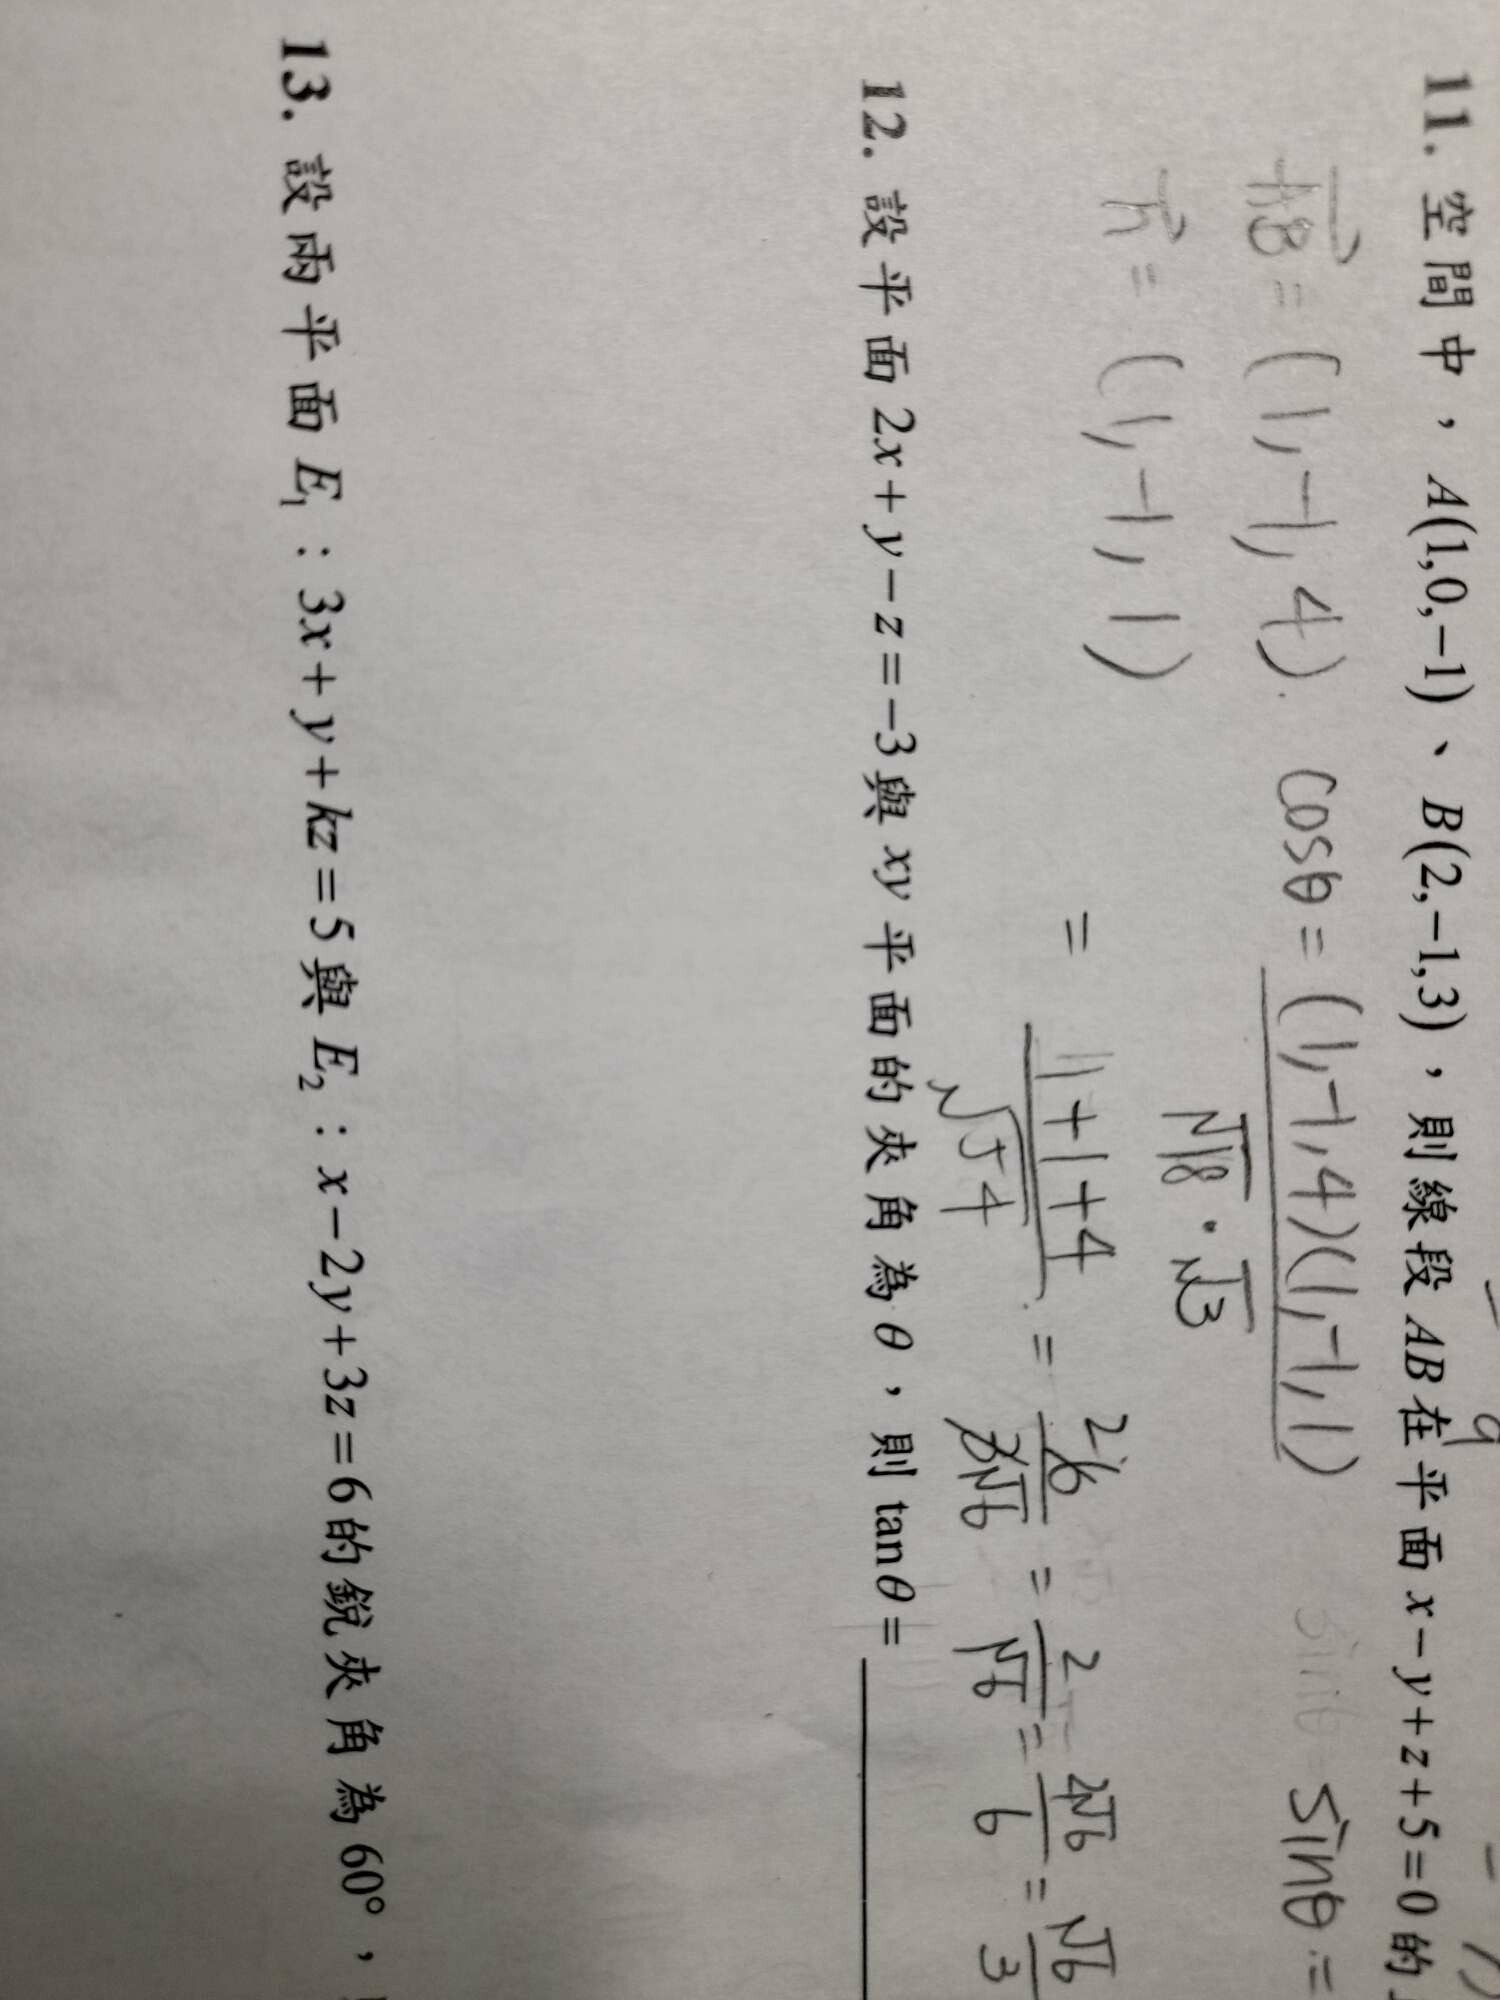 11. 空間中，A(1,0,−1)、B(2,−1,3)，則線段AB在平面x−y+z+5=0的
AB = (1,−1,4). cosθ = (1,−1,4)(1,−1,1) / √18·√3 sinθ =
n = (1,−1,1)
= 1+1+4 / √54 = 6 / 3√6 = 2 / √6 = 2√6 / 6 = √6 / 3
12. 設平面2x+y−z=−3與xy平面的夾角為θ，則tanθ=
13. 設兩平面E₁：3x+y+kz=5與E₂：x−2y+3z=6的銳夾角為60°，